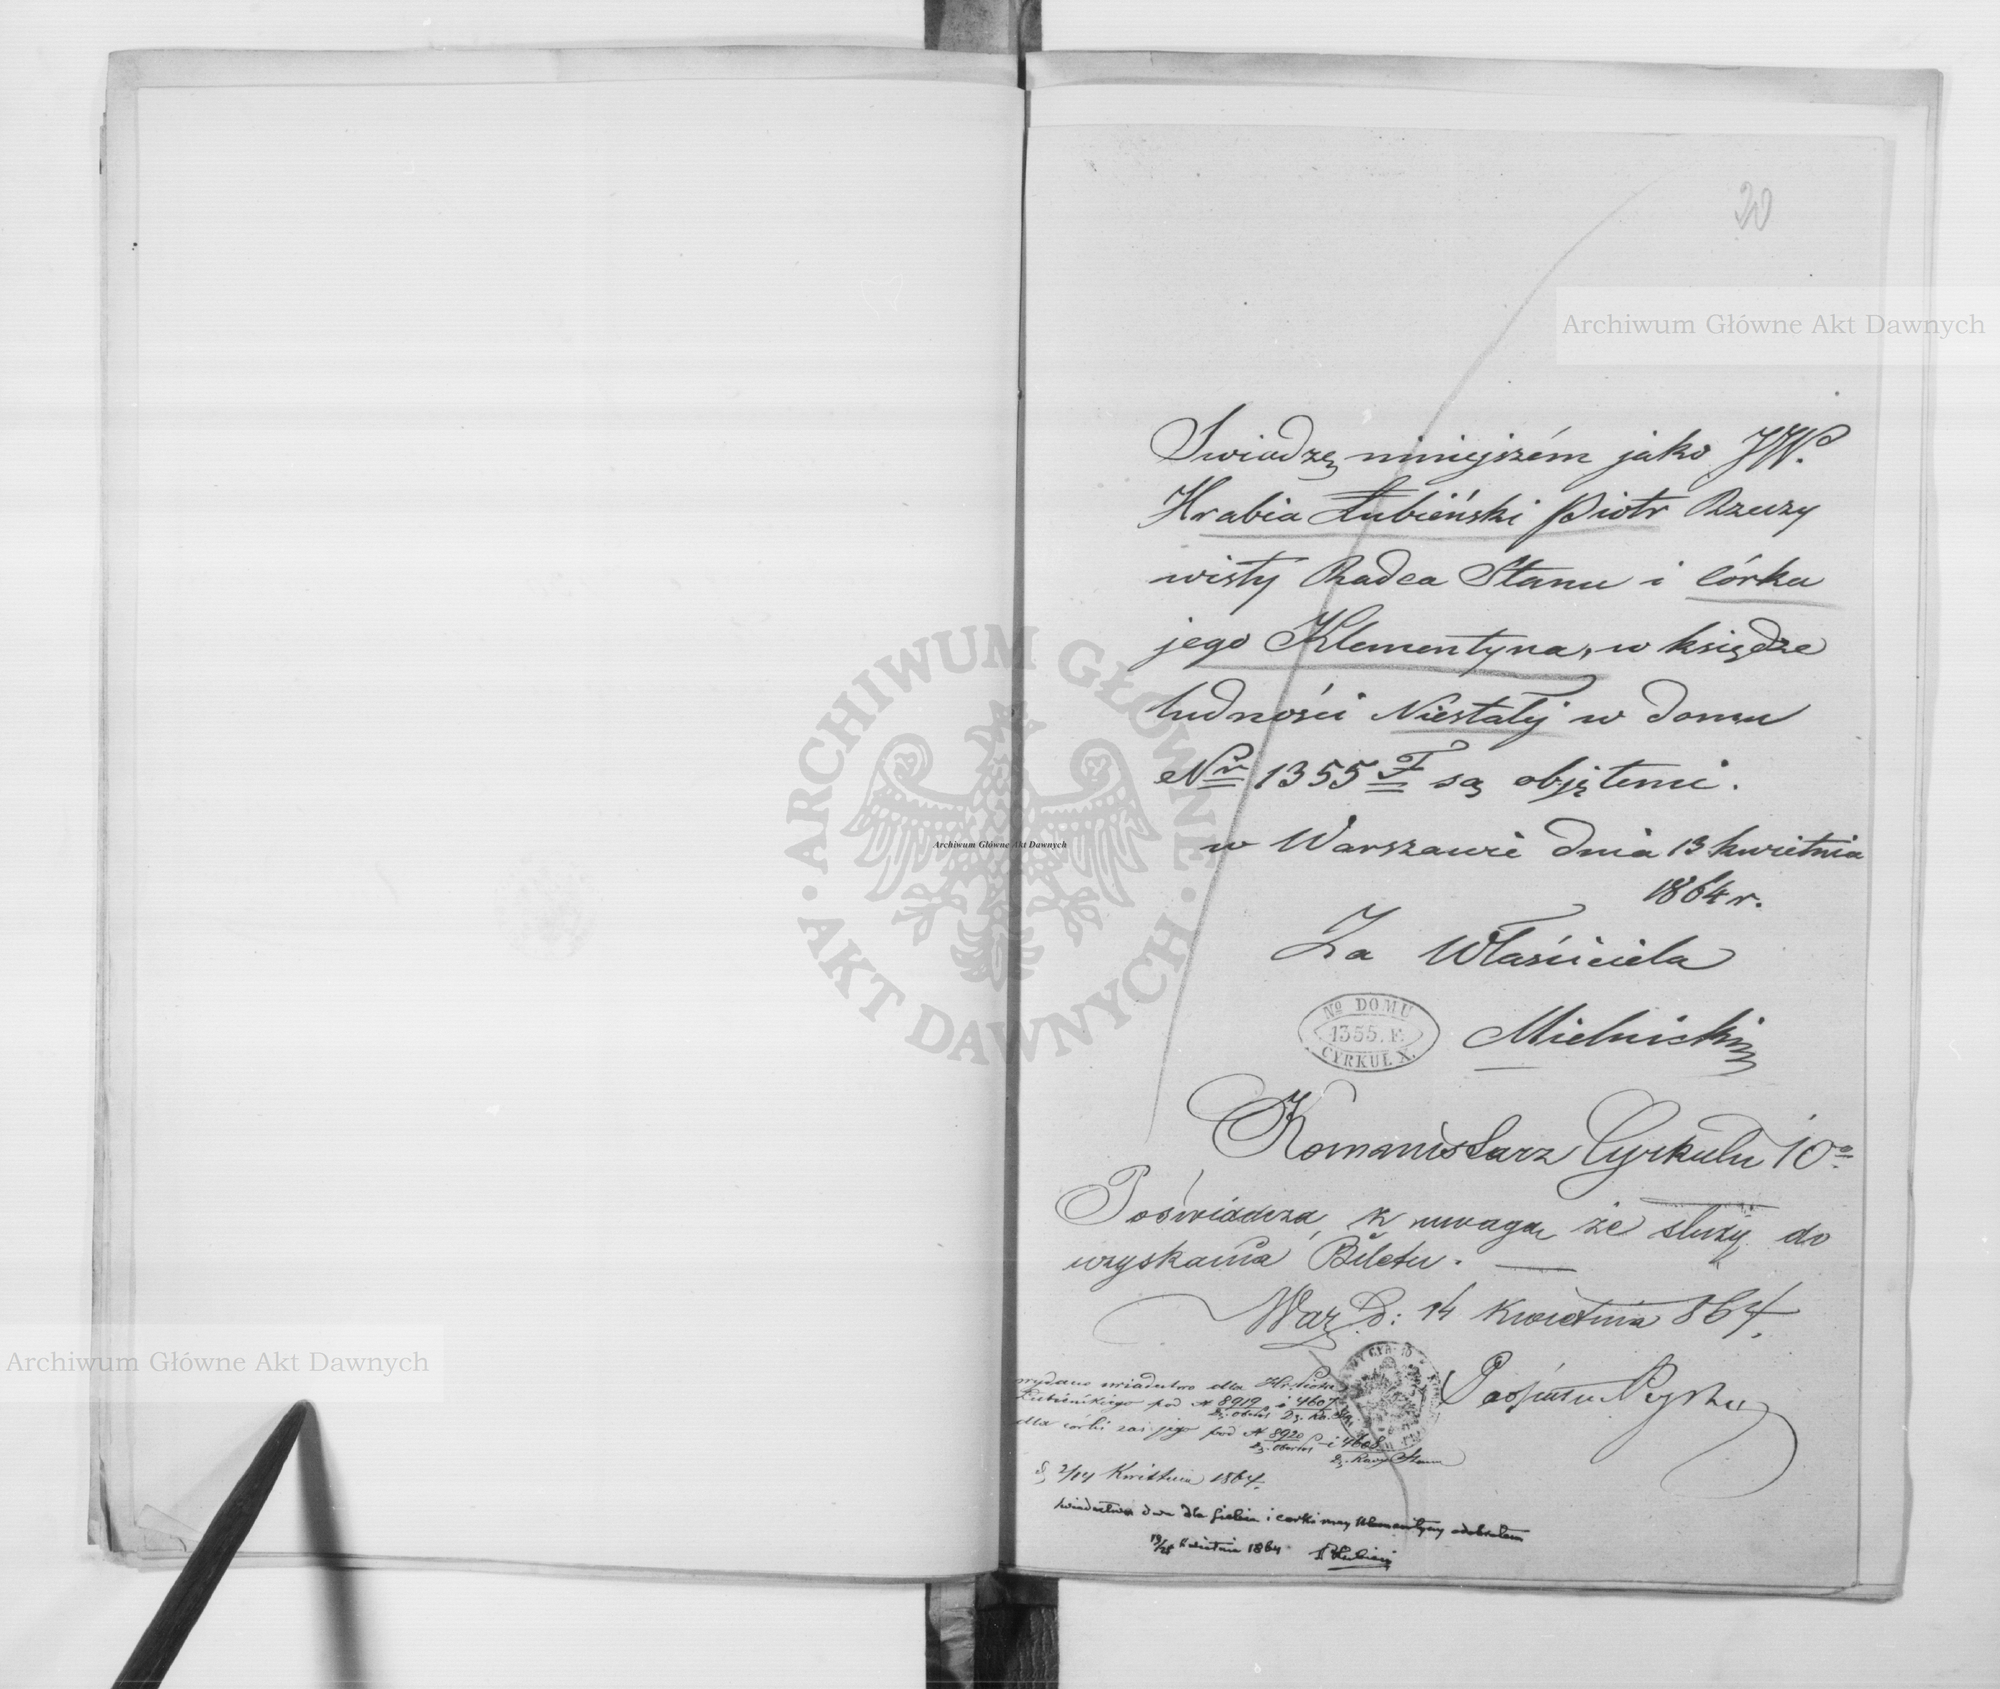 20
Archiwum Główne Akt Dawnych
Swiadzę niniejszém jako JW.
Hrabia Łubieński Piotr Rzeczy
wisty Radca Stanu i córka
jego Klementyna, w księdze
ludności Niestałej w domu
Nr 1355 F są objętemi.
w Warszawie dnia 13 kwietnia
1864 r.
Za Właściciela
No DOMU
1355. F.
CYRKUŁ X.
Mielnicki
Kommissarz Cyrkułu 10o
Poświadcza, z uwagą że służy do
uzyskania Biletu.
War. d: 14 Kwietnia 864.
wydano swiadectwo dla Hr. Piotra
Łubieńskiego pod N 8919 i 4607
dla córki zaś jego pod N 8920 i 4608
d. 2/14 Kwietnia 1864.
Swiadectwa dwa dla siebie i corki mey Klementyny odebrałem
Kwietnia 1864
ARCHIWUM GŁÓWNE
AKT DAWNYCH
Archiwum Główne Akt Dawnych
Archiwum Główne Akt Dawnych